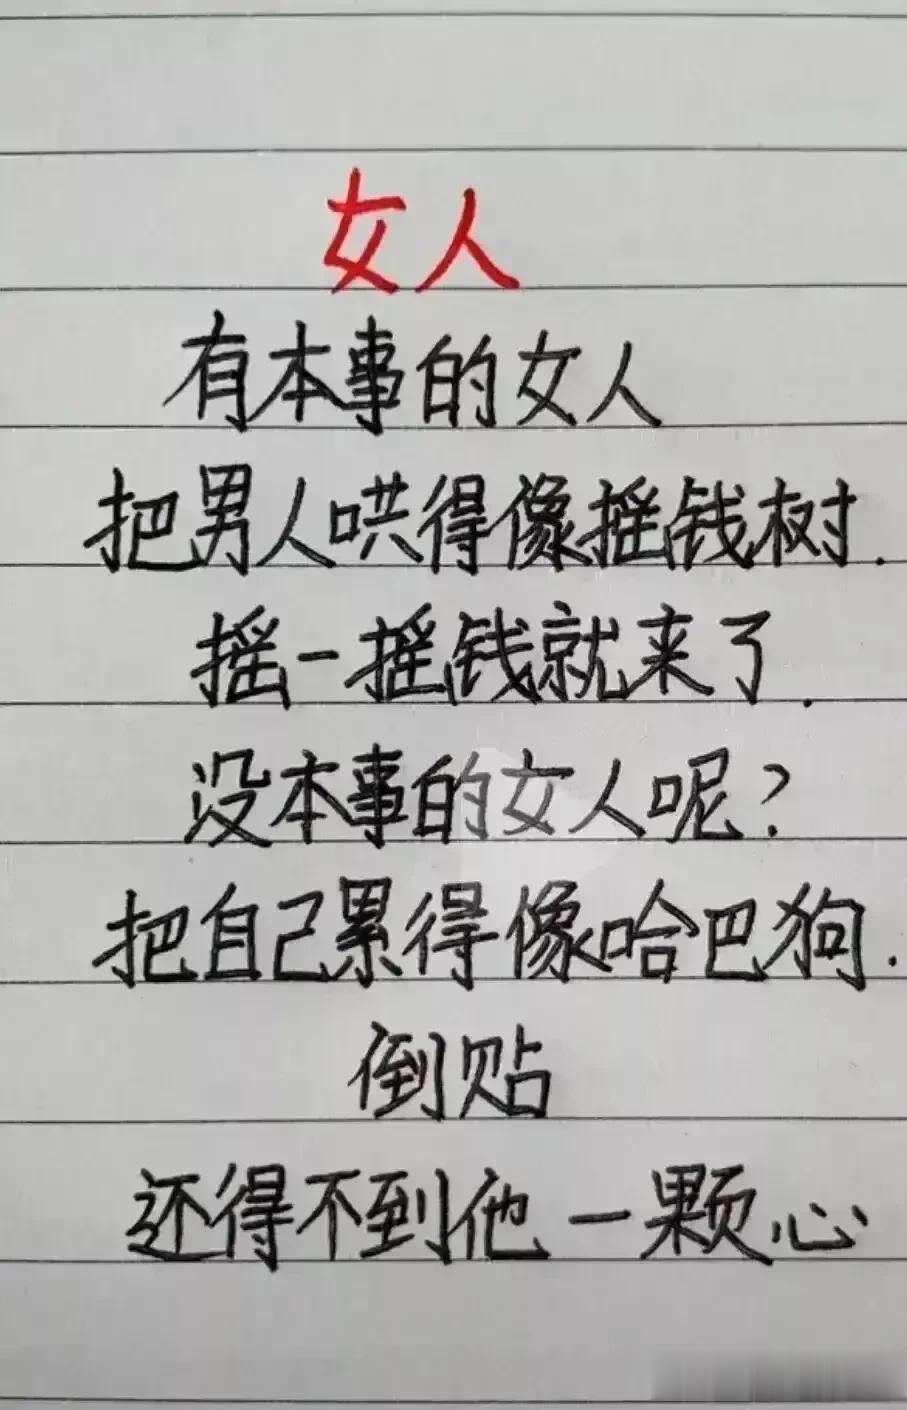 女人
有本事的女人
把男人哄得像摇钱树.
摇一摇钱就来了.
没本事的女人呢?
把自己累得像哈巴狗.
倒贴
还得不到他一颗心